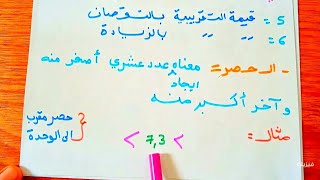 5 = قيمة التقريبية بالنقصان
6 = " " بالزيادة
- الحصر = معناه ايجاد عدد عشري أصغر منه
و آخر أكبر منه
مثال =
> 7,3 >
حصر مقرب
الى الوحدة